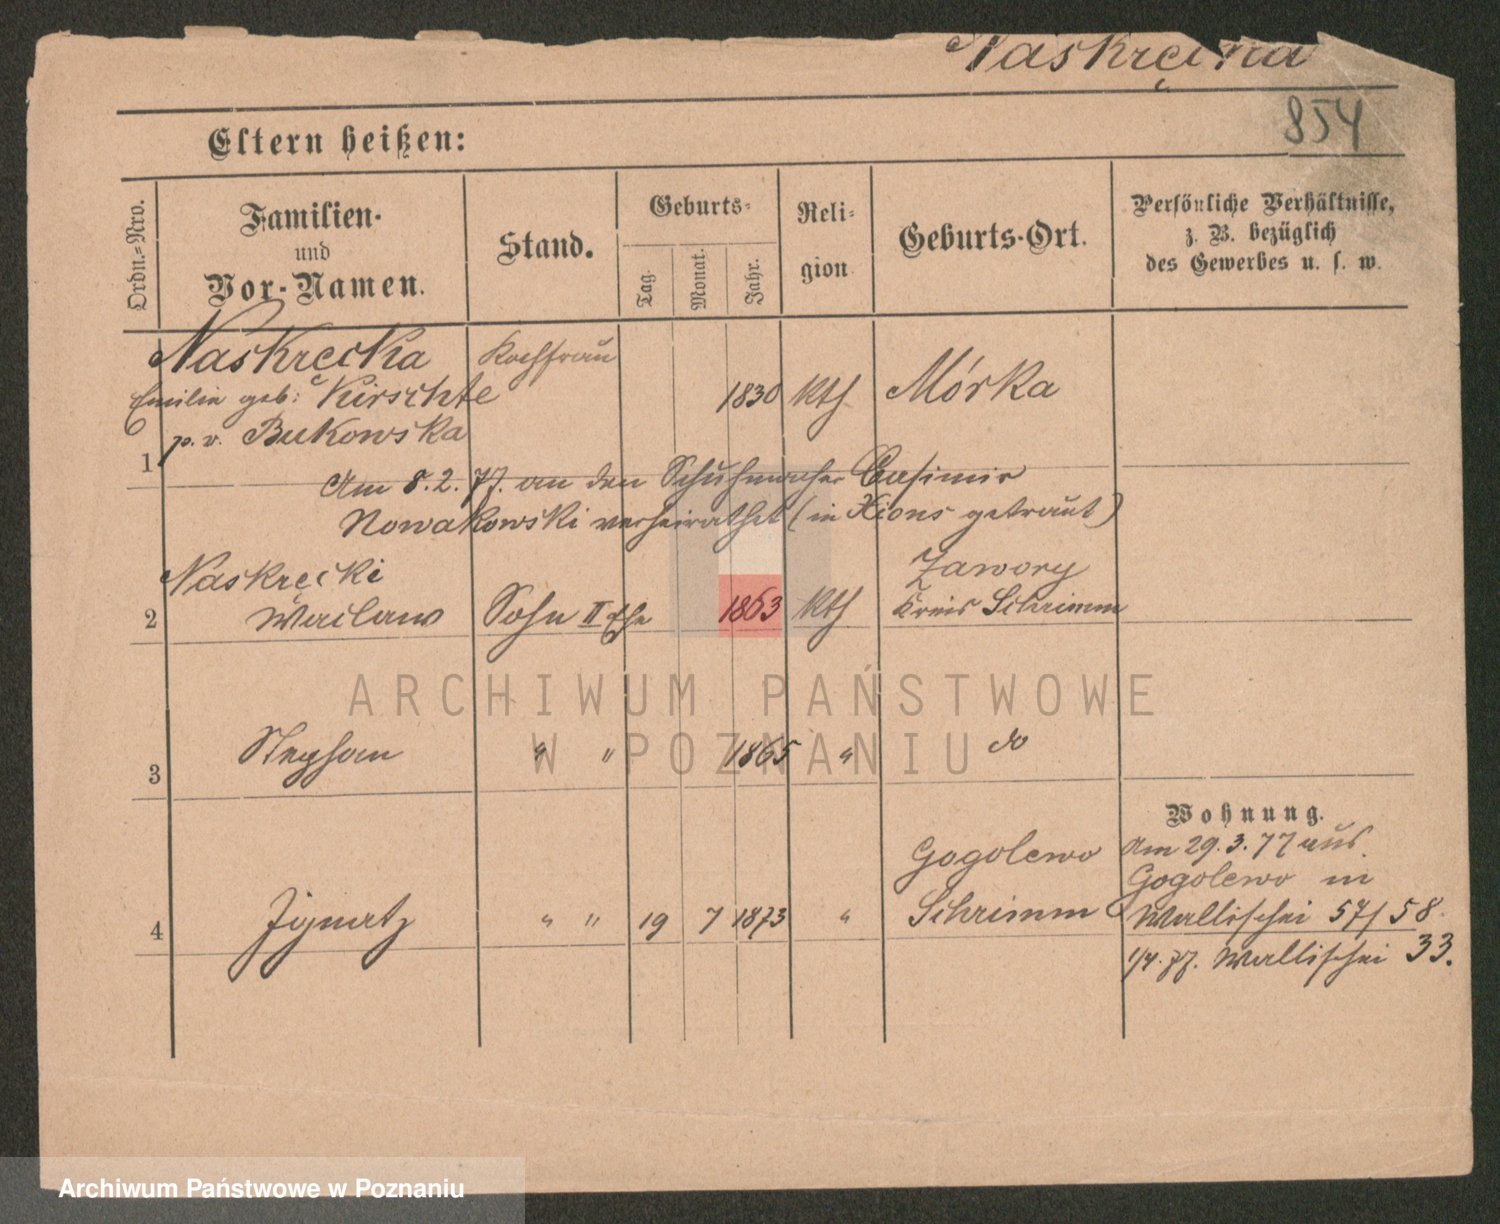 Naskręcka
854
Eltern heißen:
Ordn.-Nro.
Familien-
und
Vor-Namen.
Stand.
Geburts-
Tag.
Monat.
Jahr.
Reli-
gion
Geburts-Ort.
Persönliche Verhältnisse,
z. B. bezüglich
des Gewerbes u. s. w.
Naskręcka Kochfrau
Emilie geb: Kirschke 1830 kth Mórka
p. v. Bukowska
1
Am 8. 2. 77. an den Schuhmacher Casimir
Nowakowski verheirathet (in Xions getraut)
Naskręcki Zawory
2 Waclaw Sohn II Ehe 1863 kth Kreis Schrimm
ARCHIWUM PAŃSTWOWE
W POZNANIU
3 Stephan " " 1865 " do
Wohnung.
Gogolewo Am 29. 3. 77 aus
Gogolewo in
4 Ignatz " " 19 7 1873 " Schrimm Wallischei 57/58.
1/4. 77. Wallischei 33.
Archiwum Państwowe w Poznaniu